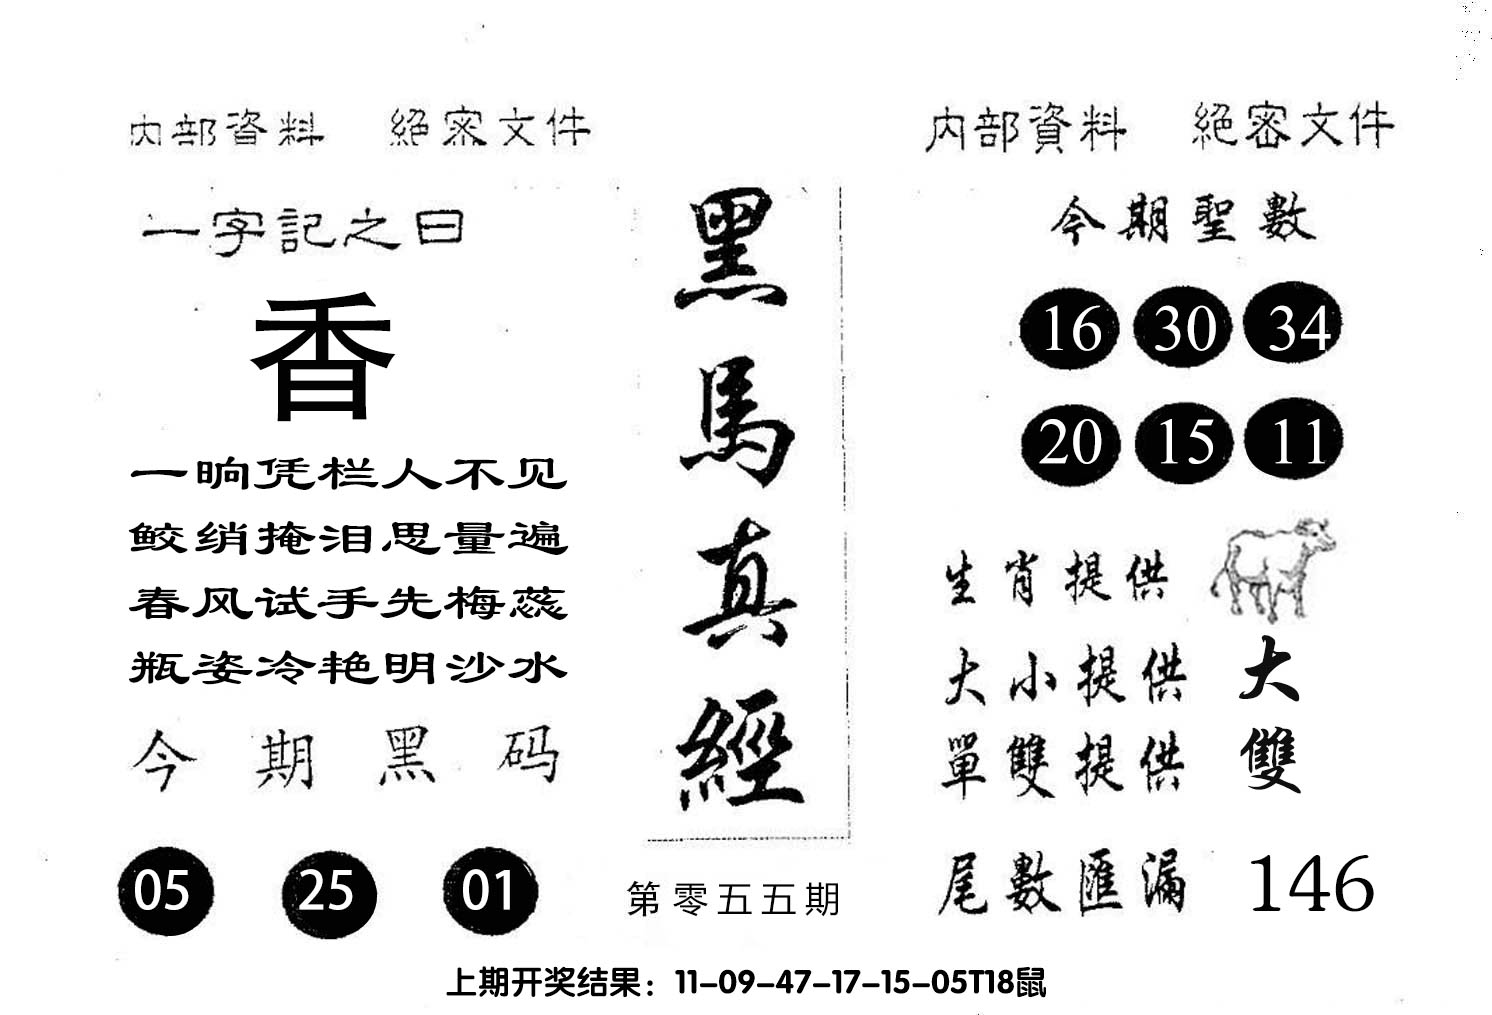 内部資料 絕密文件
一字記之曰
香
一晌凭栏人不见
鲛绡掩泪思量遍
春风试手先梅蕊
瓶姿冷艳明沙水
今期黑码
05 25 01
黑馬真經
第零五五期
内部資料 絕密文件
今期聖數
16 30 34
20 15 11
生肖提供
大小提供 大
單雙提供 雙
尾數匯漏 146
上期开奖结果：11-09-47-17-15-05T18鼠